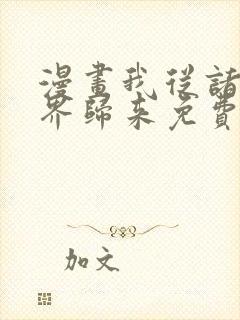 漫畫我從諸
界歸來免費
加文